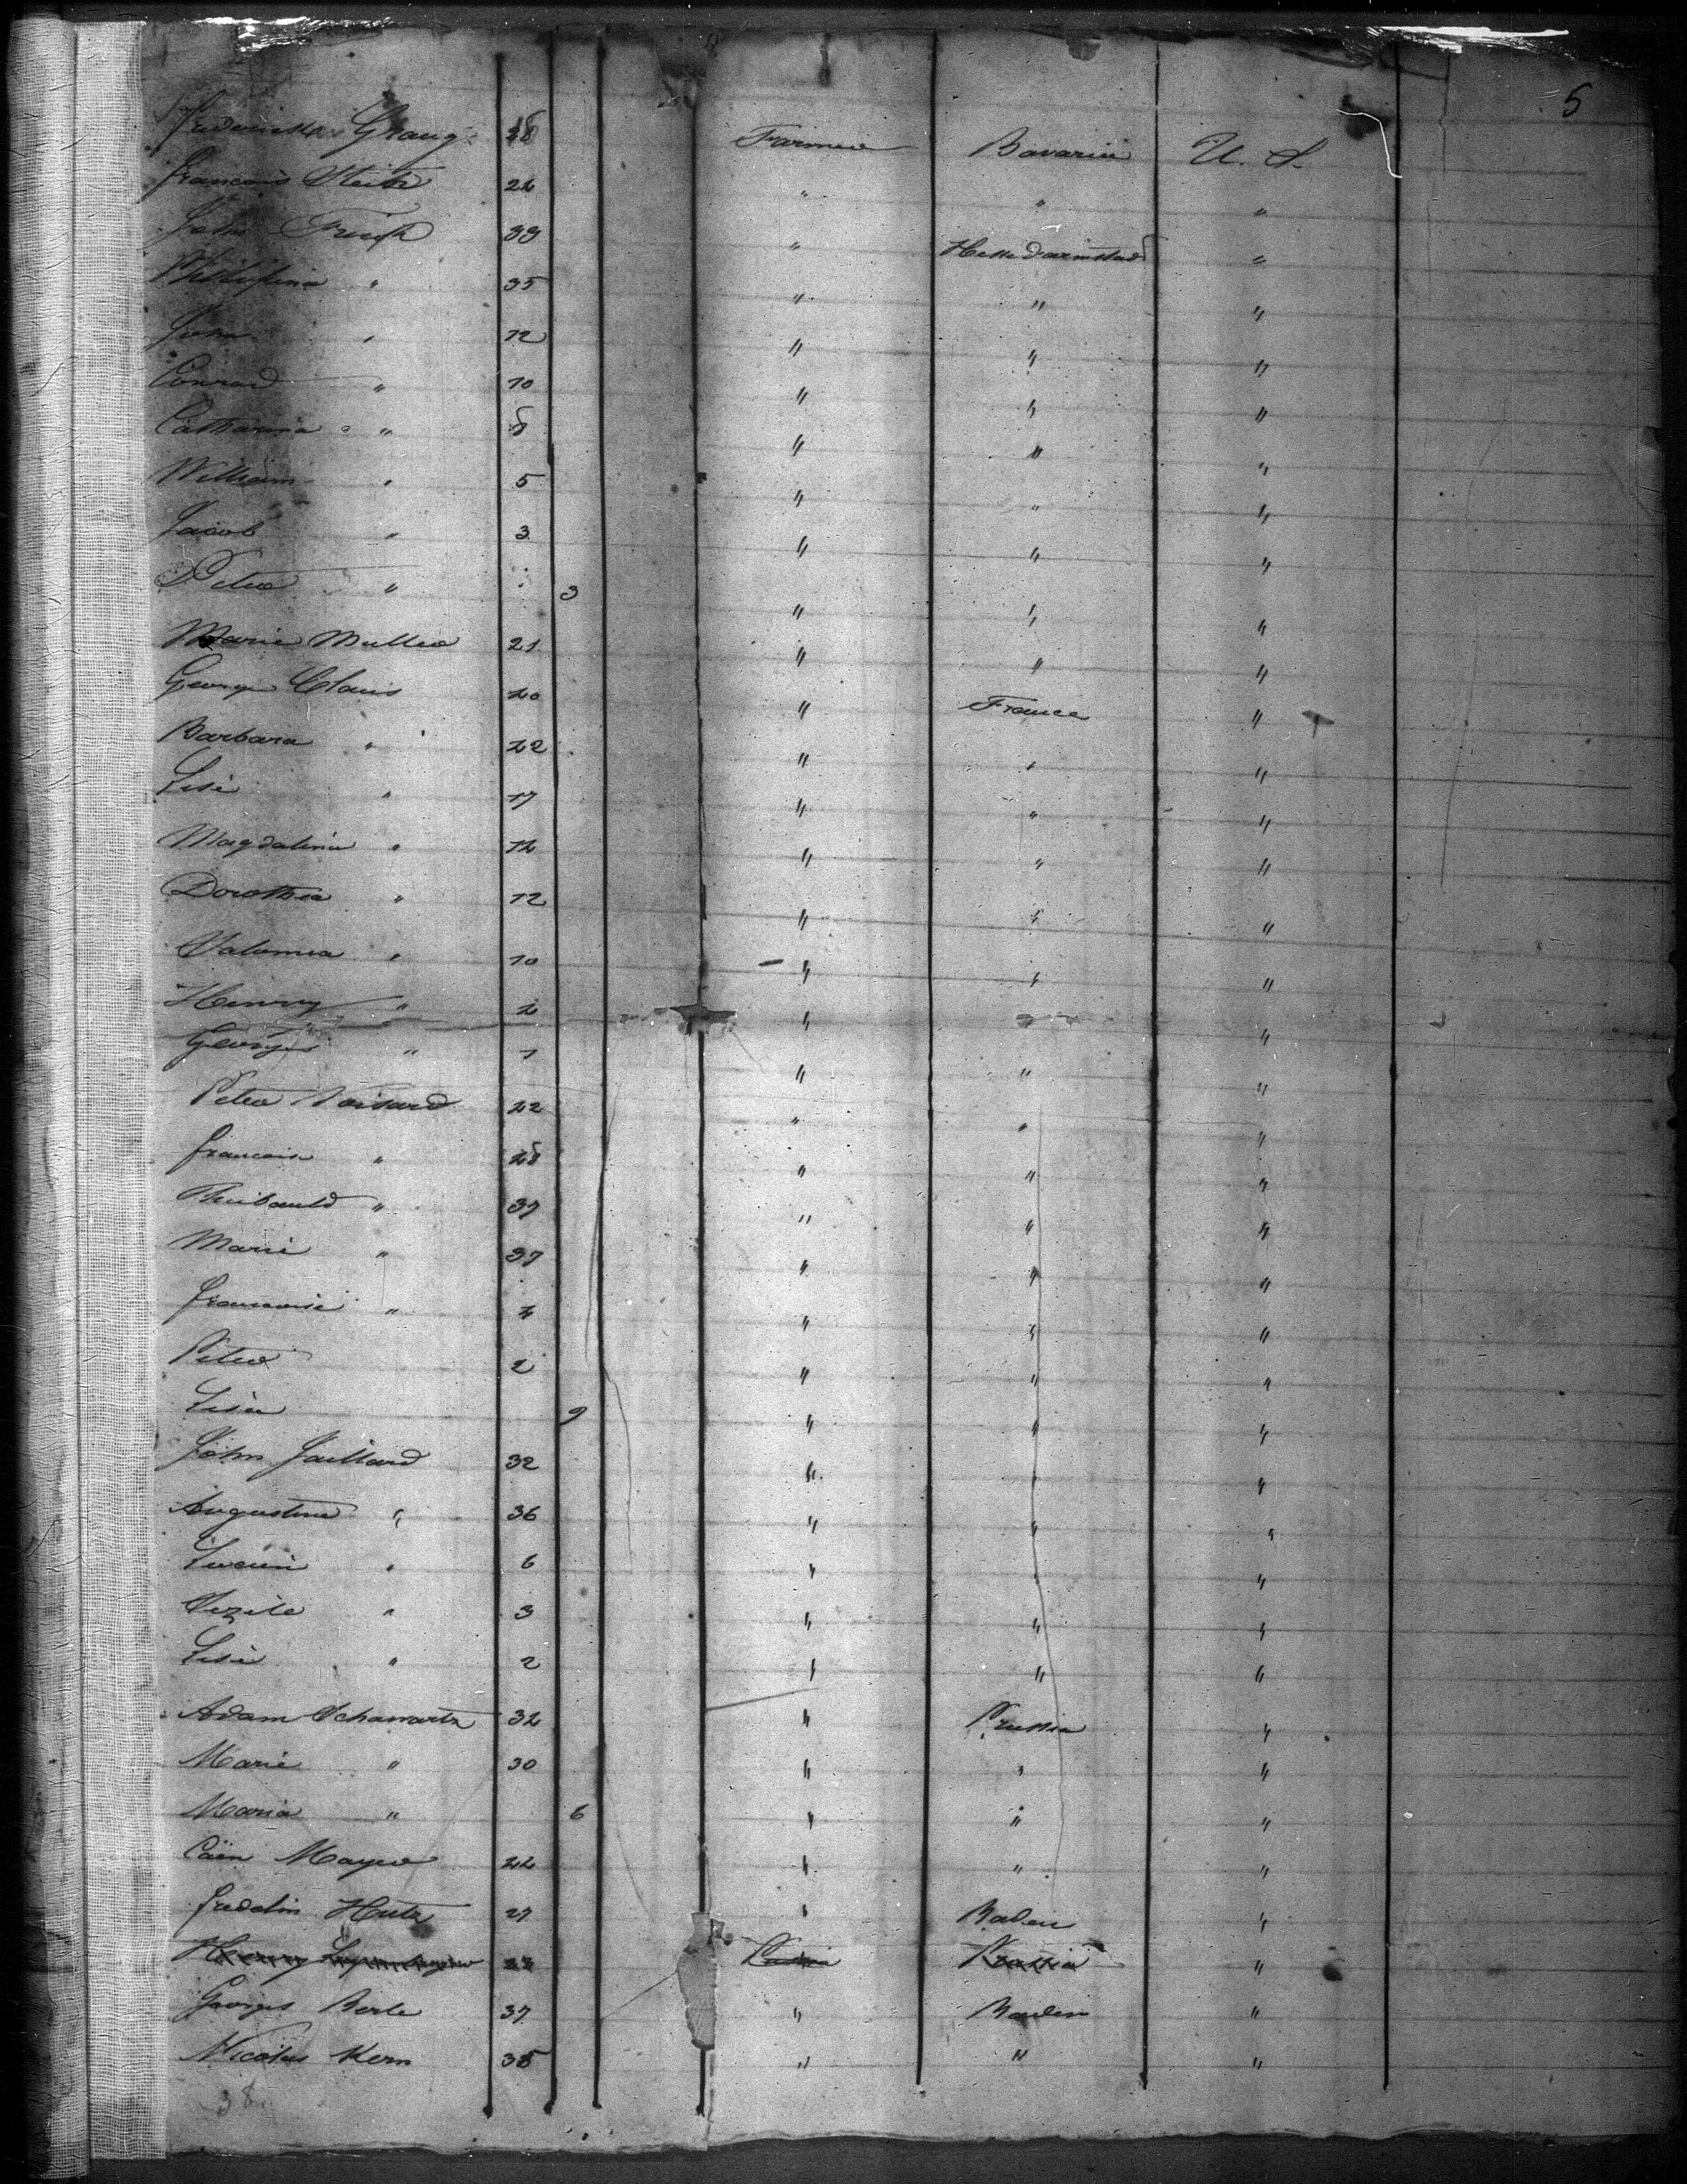 5
Fredericka Graug 28 Farmer Bavaria U. S.
Francois Steitz 24 " " "
John Frisch 33 " Hesse Darmstad "
Philipina " 35 " " "
John " 12 " " "
Conrad " 10 " " "
Catharina " 8 " " "
William " 5 " " "
Jacob " 3 " " "
Peter " 3 " " "
Marie Muller 21 " " "
George Claus 40 " France "
Barbara " 42 " " "
Lisi " 17 " " "
Magdalena " 14 " " "
Dorothea " 12 " " "
Salomea " 10 " " "
Henry " 2 " " "
Georges " 1 " " "
Peter 22 " " "
Francois " 28 " " "
Thiibauld " 37 " " "
Marie " 37 " " "
Francoise " 4 " " "
Peter 2 " " "
Lisa 9 " " "
John Jaillard 32 " " "
Augustine " 36 " " "
Lucien " 6 " " "
" 3 " " "
Lisi " 2 " " "
Adam Schawartz 32 " Prussia "
Marie " 30 " " "
Maria " 6 " " "
Caën Mayer 24 " " "
Fredolin Hutz 27 " Baden "
Henry Prussia "
Georges Berle 37 " Baden "
Nicolas Kern 35 " " "
38